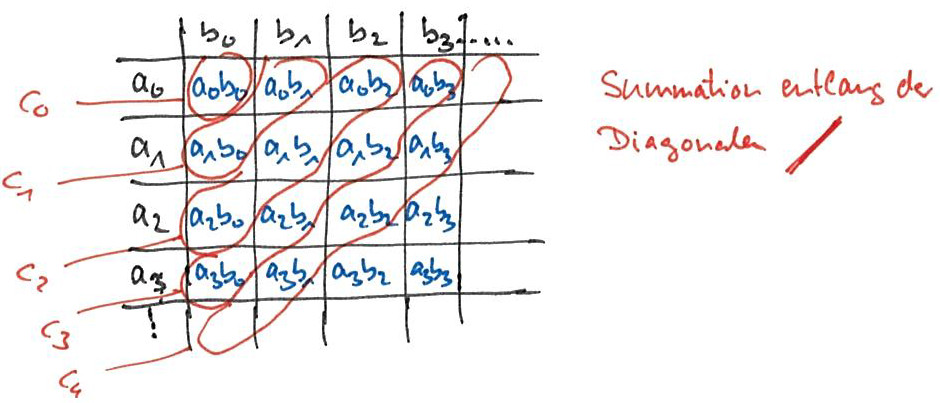 b₀ b₁ b₂ b₃ .....
a₀ a₀b₀ a₀b₁ a₀b₂ a₀b₃
c₀
a₁ a₁b₀ a₁b₁ a₁b₂ a₁b₃
c₁
a₂ a₂b₀ a₂b₁ a₂b₂ a₂b₃
c₂
a₃ a₃b₀ a₃b₁ a₃b₂ a₃b₃
c₃
⋮
c₄
Summation entlang der
Diagonalen /